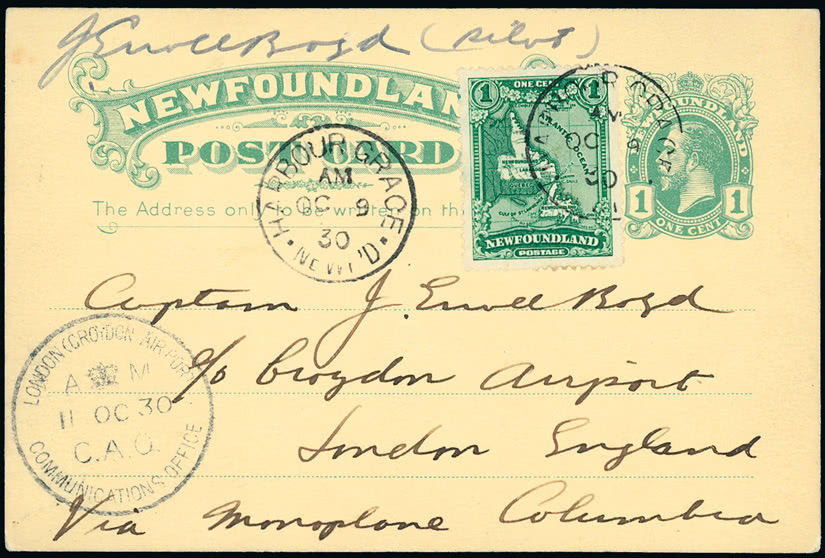 J. Erroll Boyd (pilot)
NEWFOUNDLAND
POST CARD
The Address only to be written on th
1 ONE CENT 1
NEWFOUNDLAND
POSTAGE
NEWFOUNDLAND
1 1
ONE CENT
HARBOUR GRACE
AM
OC 9
30
NEWF'D
HARBOUR GRACE
AM
OC 9
30
Captain J. Erroll Boyd
c/o Croydon Airport
London England
Via Monoplane Columbia
LONDON (CROYDON) AIR PORT
A M
11 OC 30
C.A.O.
COMMUNICATIONS OFFICE